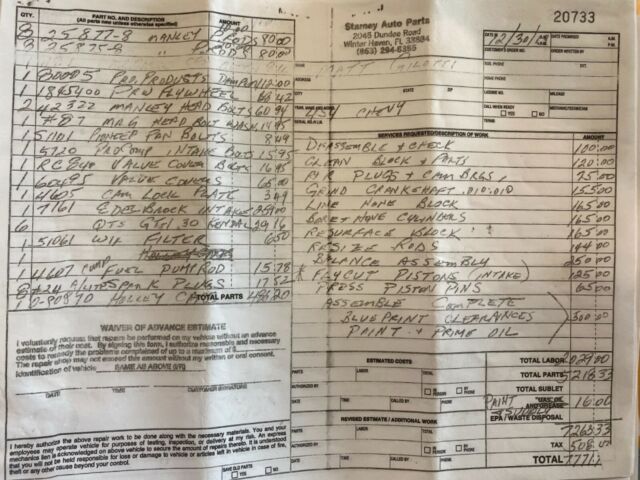 20733
Starney Auto Parts
2045 Dundee Road
Winter Haven, FL 33884
(863) 294-6385
DATE IN 12/30/
QTY. PART NO. AND DESCRIPTION AMOUNT
(All parts new unless otherwise specified)
8 25877-8 MANLEY RODS 80.00
25875-8 " RODS 80.00
1 80005 PRO PRODUCTS DAMPEN 112.00
1 FLYWHEEL 68.42
2 42322 MANLEY HEAD BOLTS 60.94
1 #87 MAG HEAD BOLT WASH 14.95
1 51101 PIONEER PAN BOLTS 8.49
1 5720 PRO COMP INTAKE BOLTS 15.95
1 RC840 VALVE COVER BOLTS 16.95
1 60495 VALVE COVERS 65.00
1 4605 CAM LOCK PLATE 3.49
1 7161 EDELBROCK INTAKE 259.00
6 QTS GTL 30 KENDALL 29.16
1 51061 WIX FILTER 6.50
1
1 4607 PUMP FUEL PUMP ROD 15.78
8 #24 AUTOLITE SPARK PLUGS 17.52
1 0-80870 HOLLEY CA
TOTAL PARTS
NAME MATT
ADDRESS
CITY STATE
YEAR, MAKE AND MODEL 1934 CHEVY
SERIAL NO./I.D.
CUSTOMER'S ORDER NO. ORDER WRITTEN BY
LICENSE NO. MILEAGE
CALL WHEN READY
YES NO
TERMS:
SERVICES REQUESTED/DESCRIPTION OF WORK AMOUNT
DISASSEMBLE & CHECK 100.00
CLEAN BLOCK & PARTS 120.00
F/R PLUGS & CAM BRGS, 75.00
GRIND CRANKSHAFT .010.010 155.00
LINE HONE BLOCK 165.00
BORE & HONE CYLINDERS 165.00
RESURFACE BLOCK 165.00
RESIZE RODS 144.00
BALANCE ASSEMBLY 250.00
* FLYCUT PISTONS (INTAKE) 125.00
PRESS PISTON PINS 65.00
ASSEMBLE COMPLETE
BLUEPRINT CLEARANCES 500.00
PAINT & PRIME OIL
WAIVER OF ADVANCE ESTIMATE
I voluntarily request that repairs be performed on my vehicle without an advance
estimate of their cost. By signing this form, I authorize reasonable and necessary
costs to remedy the problems complained of up to a maximum of $
The repair shop may not exceed this amount without my written or oral consent.
Identification of vehicle SAME AS ABOVE (I/I)
DATE TIME CUSTOMER
I hereby authorize the above repair work to be done along with the necessary materials. You and your
employees may operate vehicle for purposes of testing, inspection, or delivery at my risk. An express
mechanics lien is acknowledged on above vehicle to secure the amount of repairs thereto. It is understood
that you will not be held responsible for loss or damage to vehicle or articles left in vehicle in case of fire,
theft or any other cause beyond your control.
SAVE OLD PARTS
YES NO
ESTIMATED COSTS
PARTS LABOR TOTAL
AUTHORIZED BY IN PERSON BY PHONE
DATE TIME CALLED BY PHONE
REVISED ESTIMATE / ADDITIONAL WORK
PARTS LABOR TOTAL
AUTHORIZED BY IN PERSON BY PHONE
DATE TIME CALLED BY PHONE
TOTAL LABOR 2029.00
TOTAL PARTS 5218.33
TOTAL SUBLET
PAINT 16.00
EPA / WASTE DISPOSAL
7263.33
TAX 508.00
TOTAL